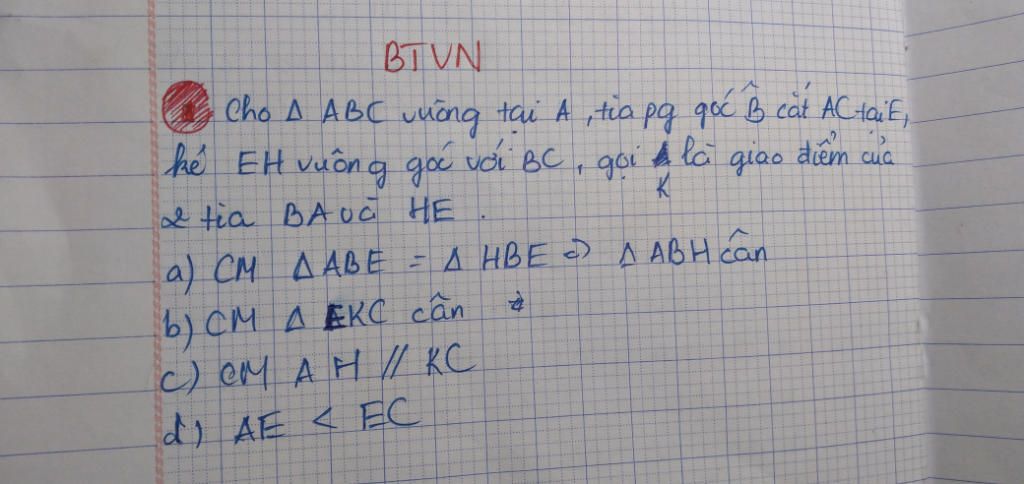 BTVN
Cho Δ ABC vuông tại A, tia pg góc B̂ cắt AC tại E,
kẻ EH vuông góc với BC, gọi K là giao điểm của
2 tia BA và HE.
a) CM Δ ABE = Δ HBE => Δ ABH cân
b) CM Δ EKC cân
c) CM AH // KC
d) AE < EC